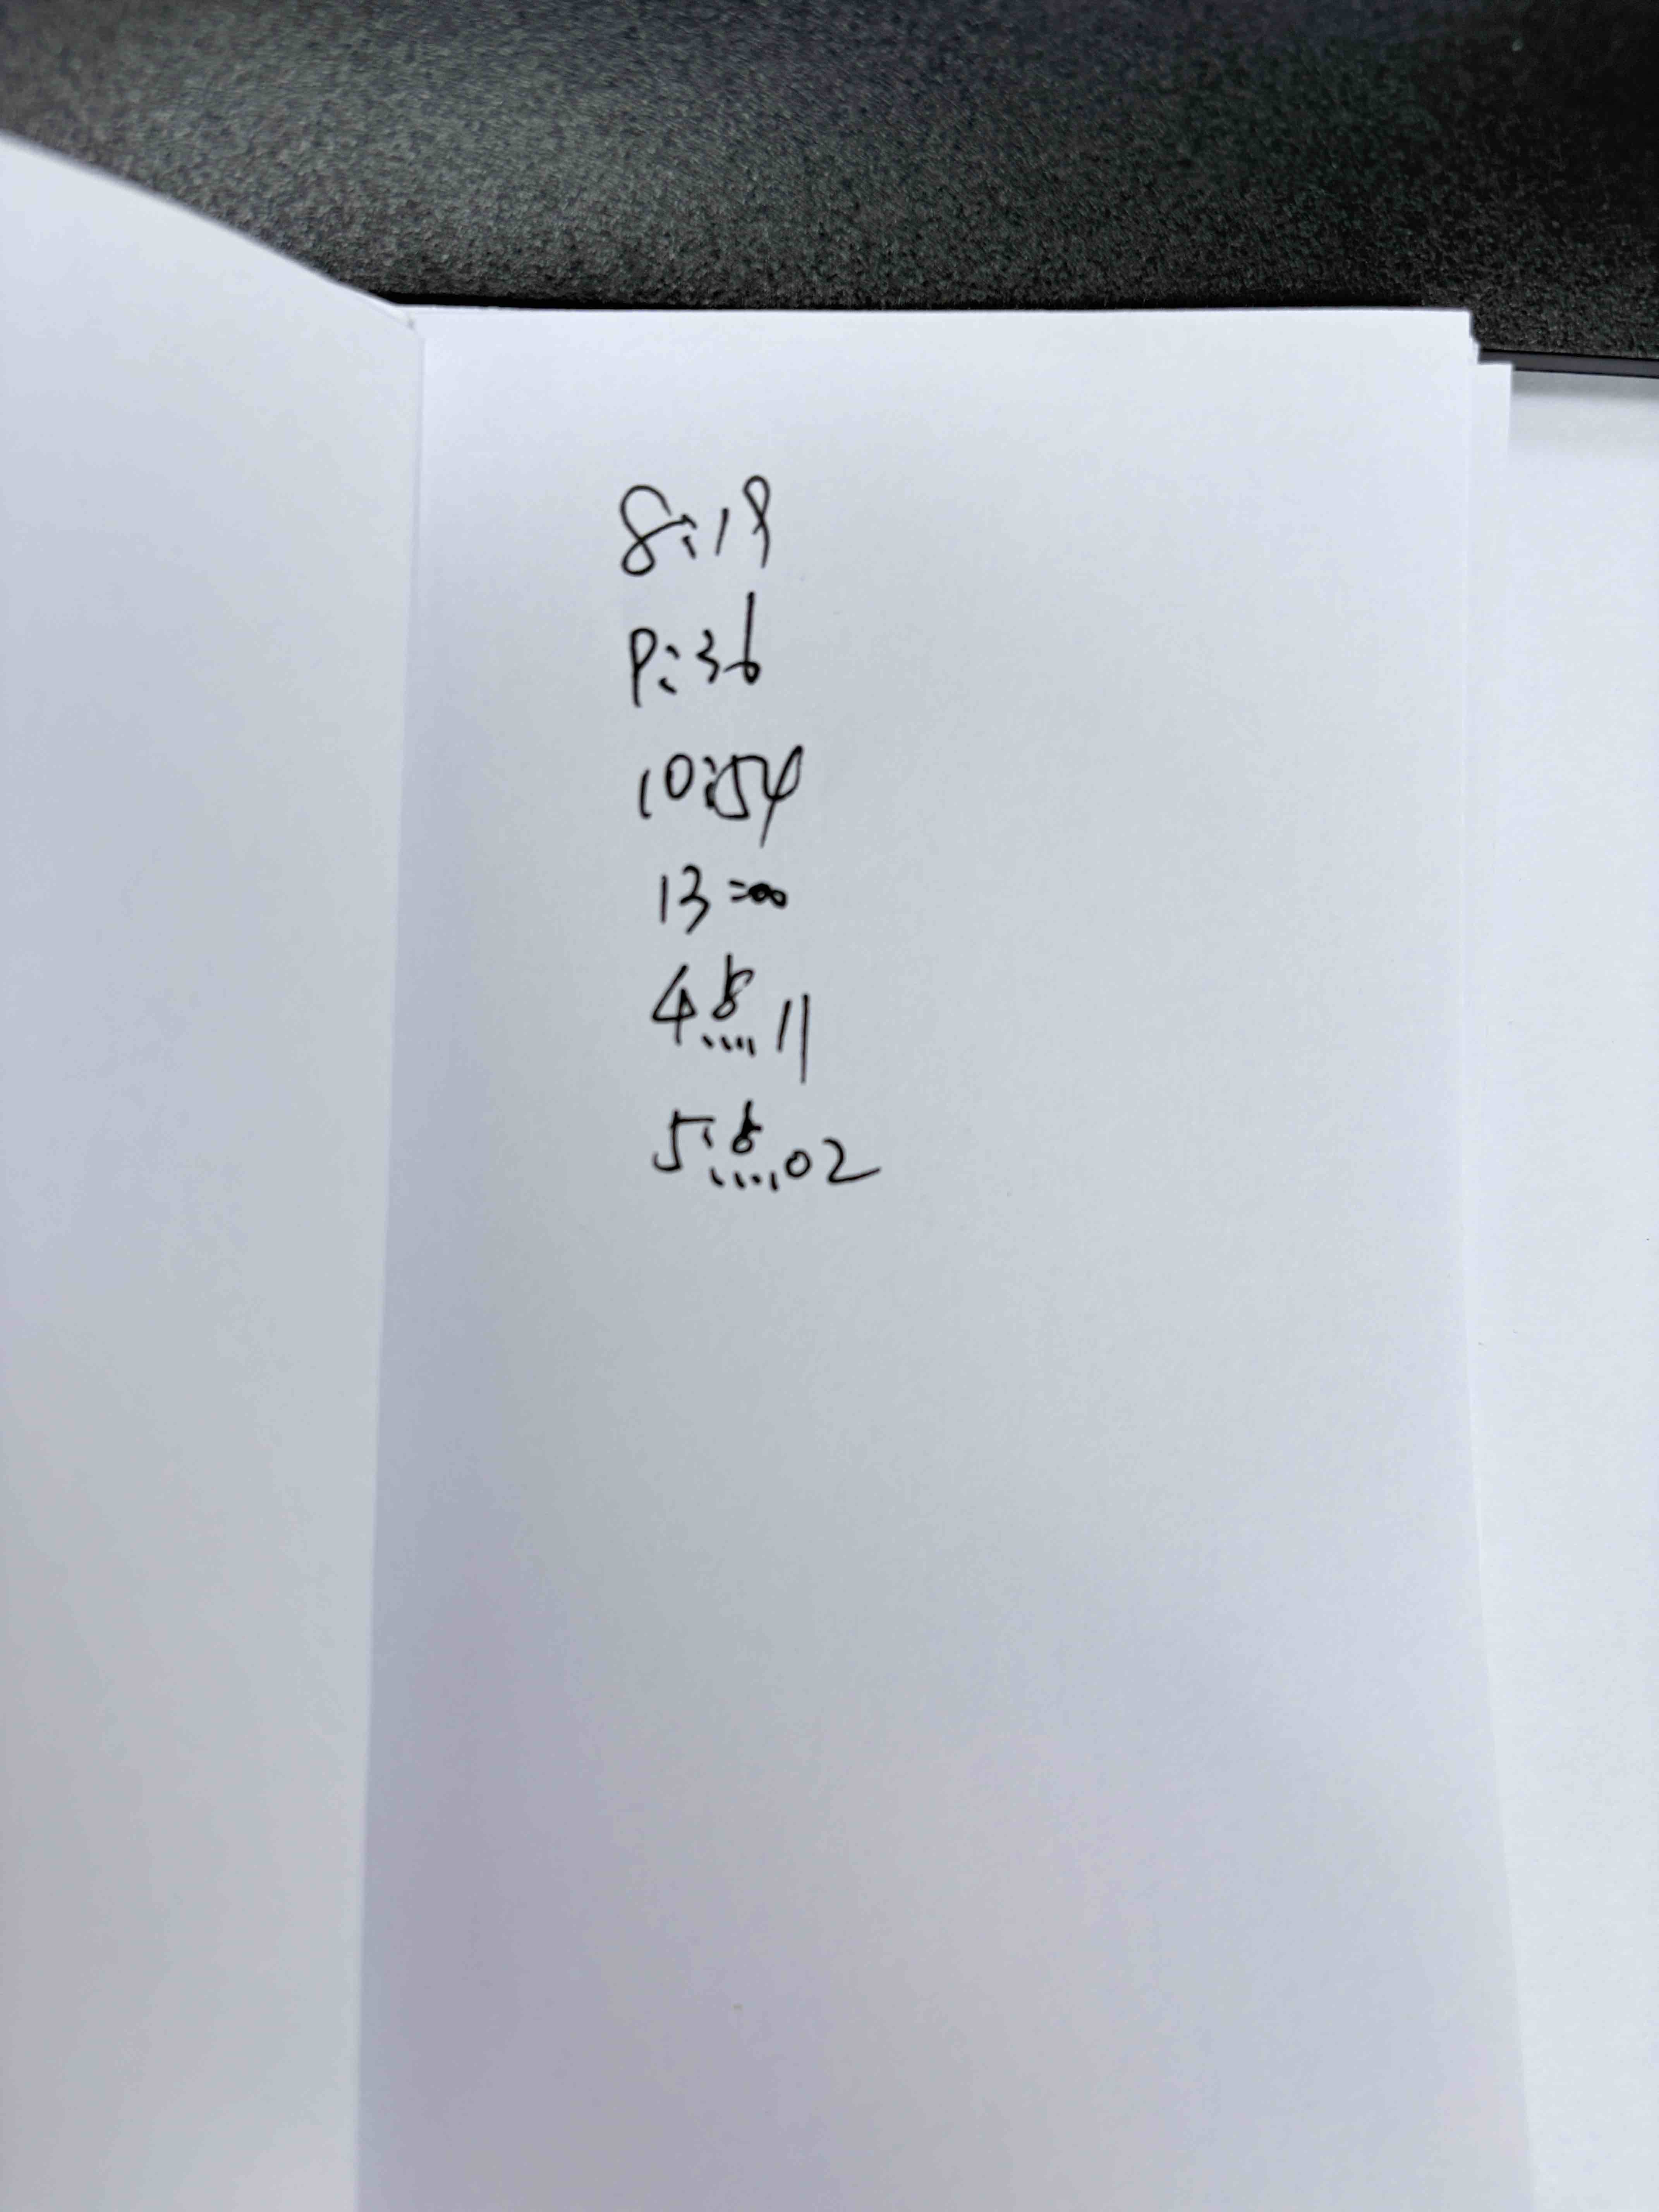 8:19
9:36
10:54
13:00
4点11
5点02